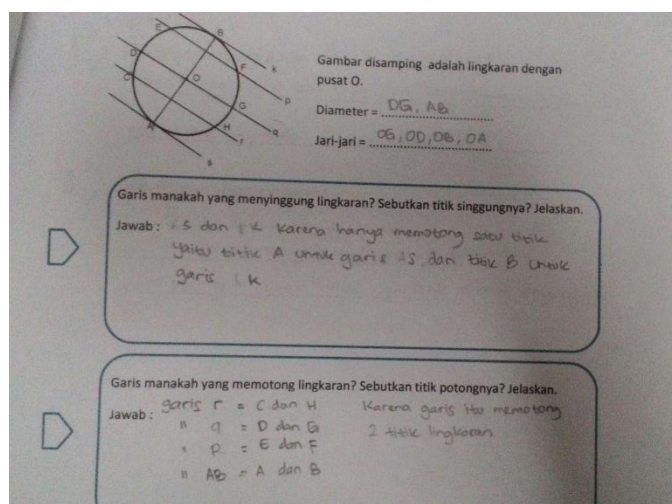 E
B
D
F
K
C
O
P
G
A
H
q
r
s
Gambar disamping adalah lingkaran dengan
pusat O.
Diameter = DG, AB
Jari-jari = OG, OD, OB, OA
Garis manakah yang menyinggung lingkaran? Sebutkan titik singgungnya? Jelaskan.
Jawab : S dan K karena hanya memotong satu titik
yaitu titik A untuk garis S dan titik B untuk
garis K
Garis manakah yang memotong lingkaran? Sebutkan titik potongnya? Jelaskan.
Jawab : garis r = C dan H Karena garis itu memotong
" q = D dan G 2 titik lingkaran
" p = E dan F
" AB = A dan B